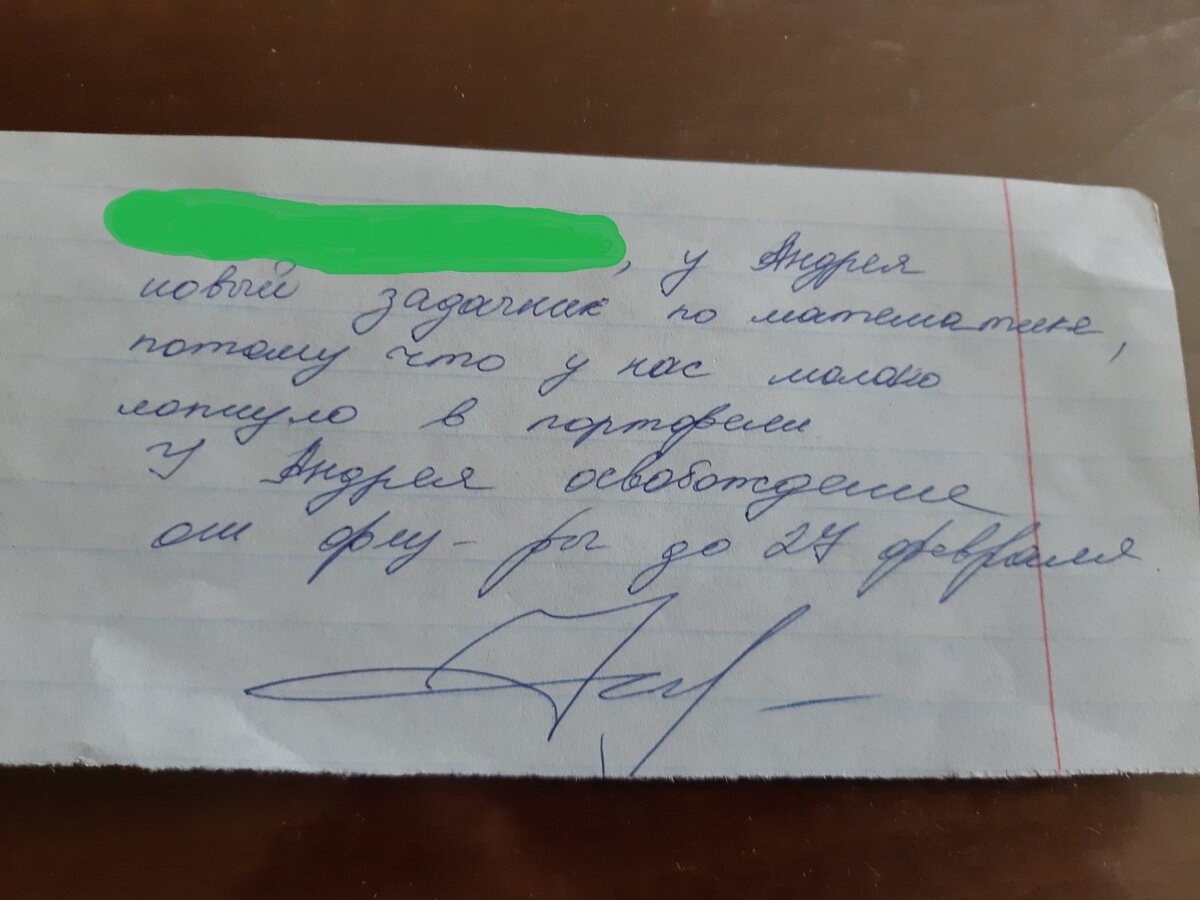 , у Андрея
новый задачник по математике,
потому что у нас молоко
лопнуло в портфели
У Андрея освобождение
от физ-ры до 27 февраля